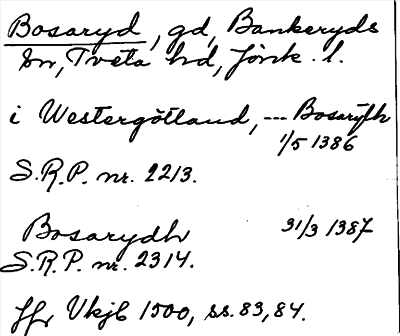 Bosaryd, gd, Bankeryds
sn, Tveta hd, Jönk. l.
i Westergötland, --- Bosarydh
1/5 1386
S.R.P. nr. 2213.
Bosarydh 31/3 1387
S.R.P. nr. 2314.
Jfr Vkjb 1500, ss. 83, 84.